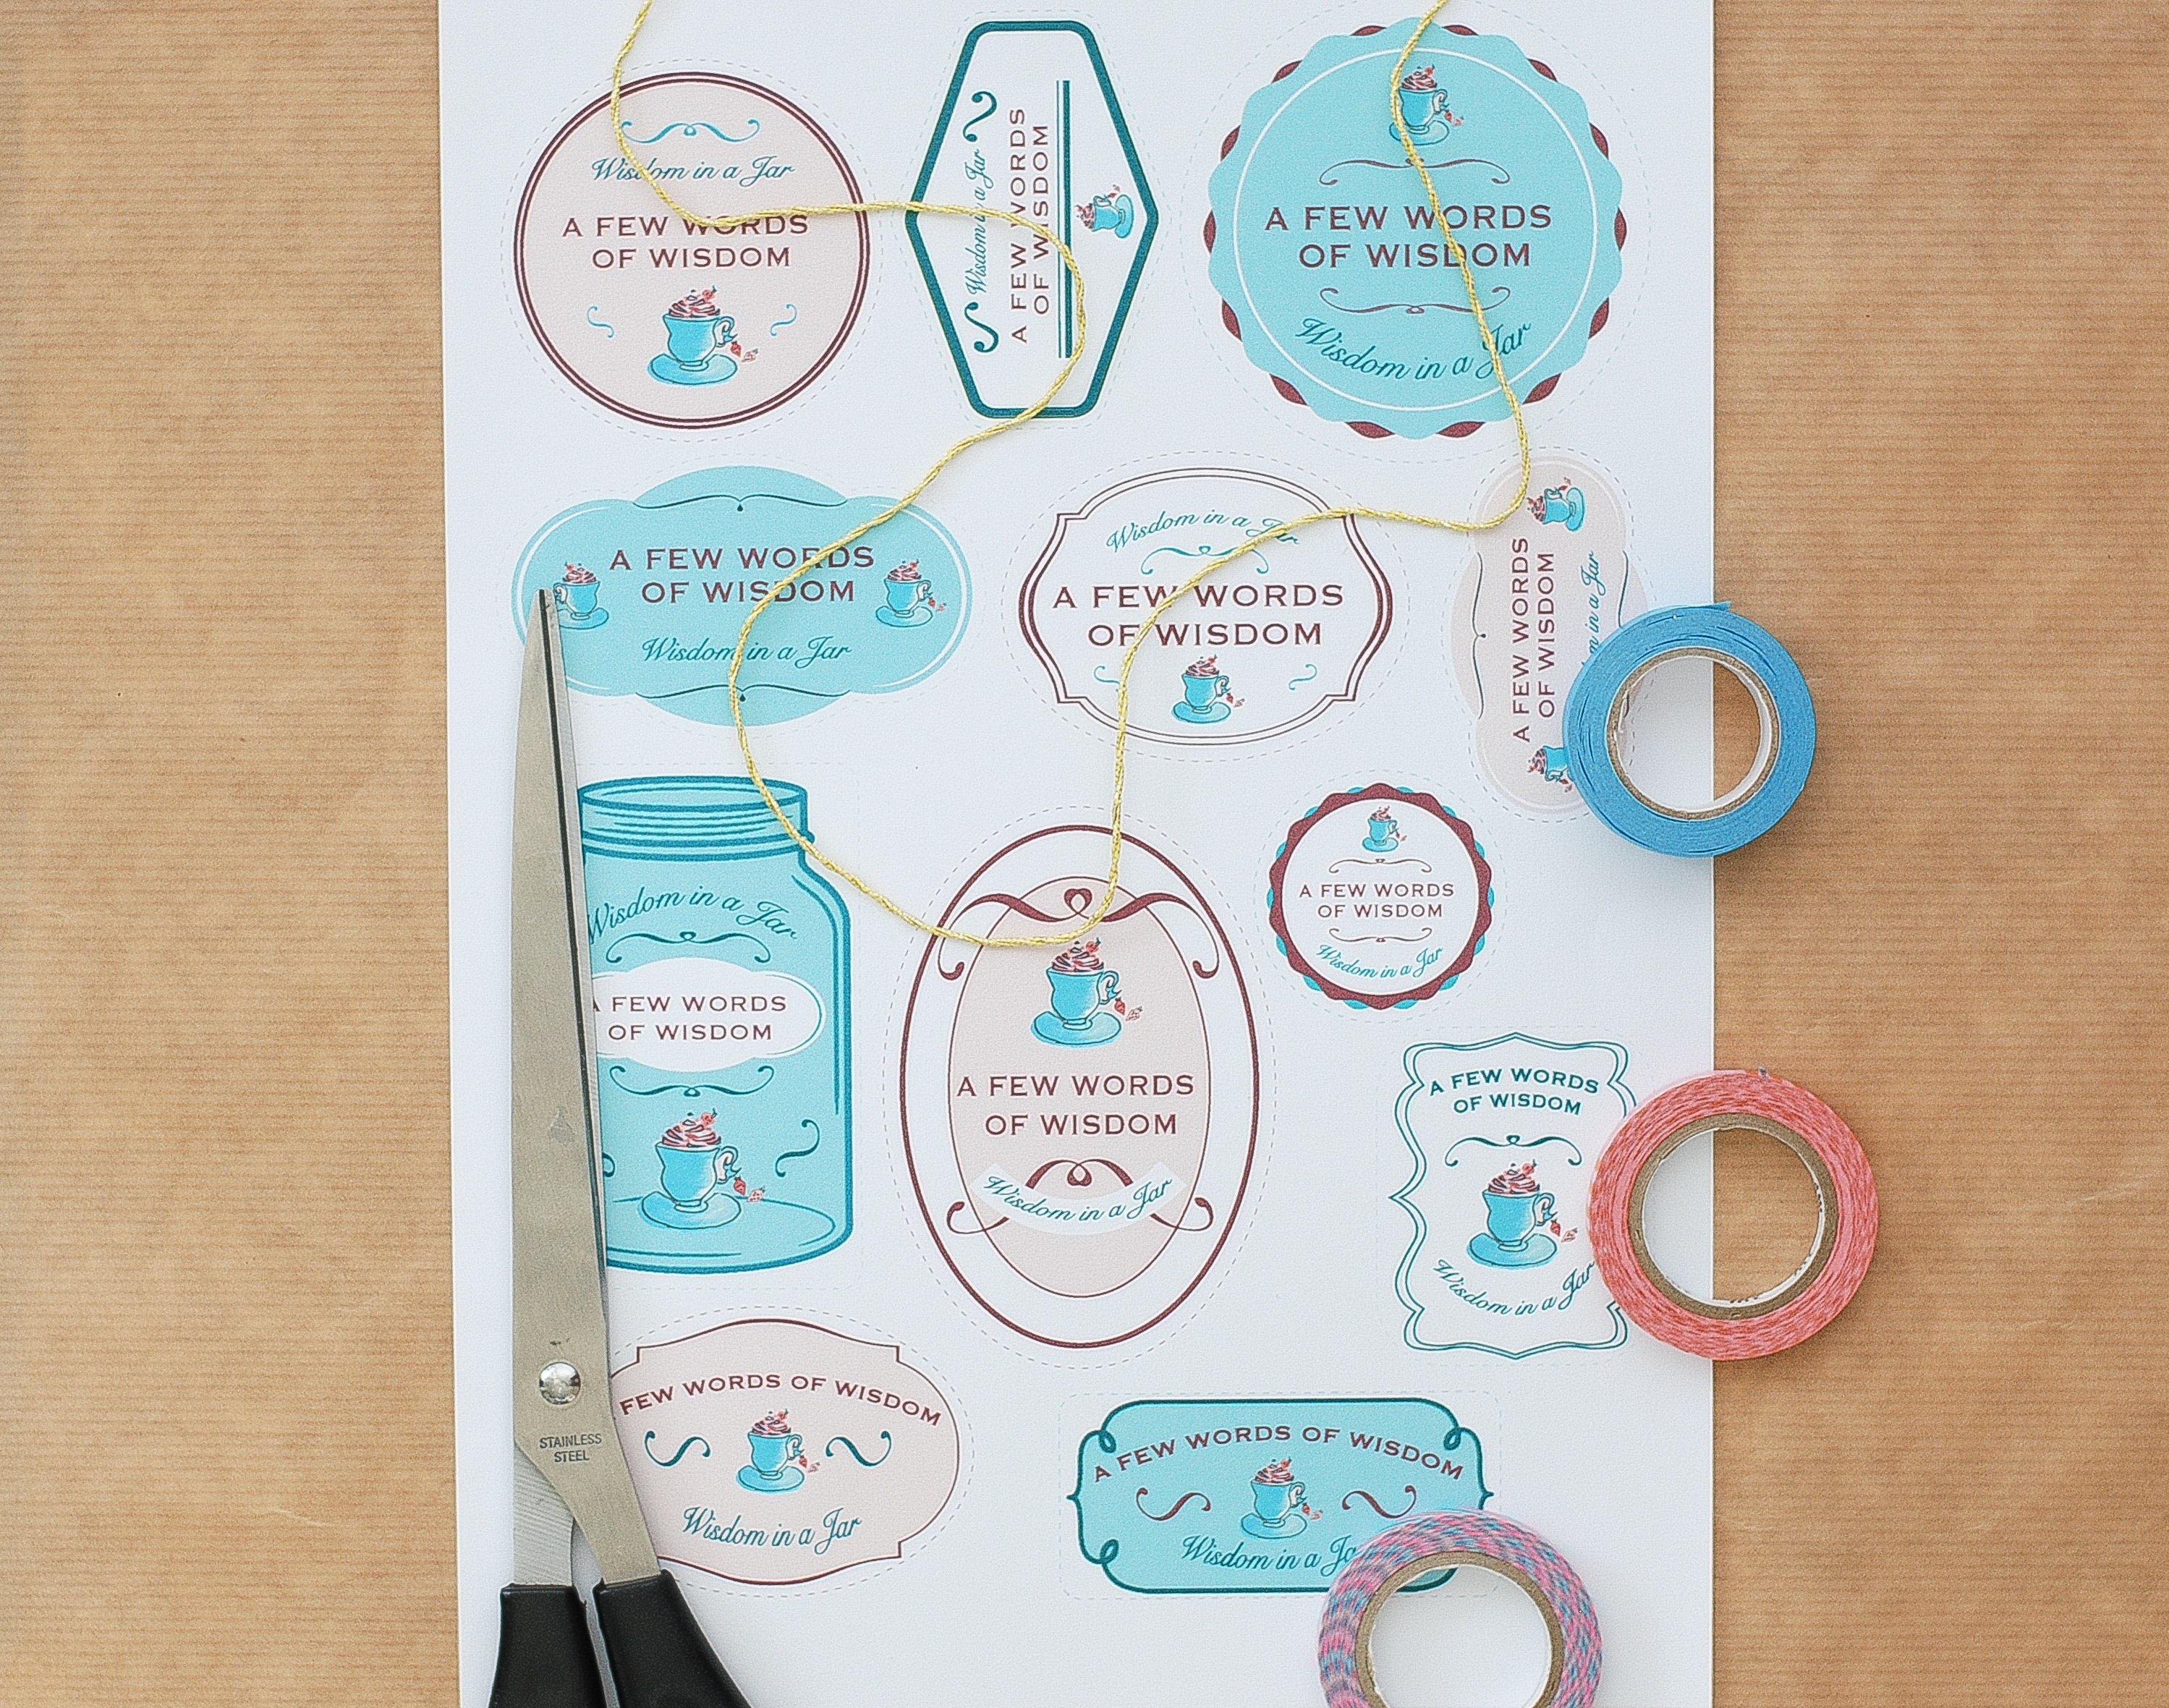 Wisdom in a Jar
A FEW WORDS
OF WISDOM
Wisdom in a Jar
A FEW WORDS
OF WISDOM
A FEW WORDS
OF WISDOM
Wisdom in a Jar
A FEW WORDS
OF WISDOM
Wisdom in a Jar
Wisdom in a Jar
A FEW WORDS
OF WISDOM
A FEW WORDS
OF WISDOM
in a Jar
Wisdom in a Jar
A FEW WORDS
OF WISDOM
A FEW WORDS
OF WISDOM
Wisdom in a Jar
A FEW WORDS
OF WISDOM
Wisdom in a Jar
A FEW WORDS
OF WISDOM
Wisdom in a Jar
FEW WORDS OF WISDOM
Wisdom in a Jar
A FEW WORDS OF WISDOM
Wisdom in a
STAINLESS
STEEL